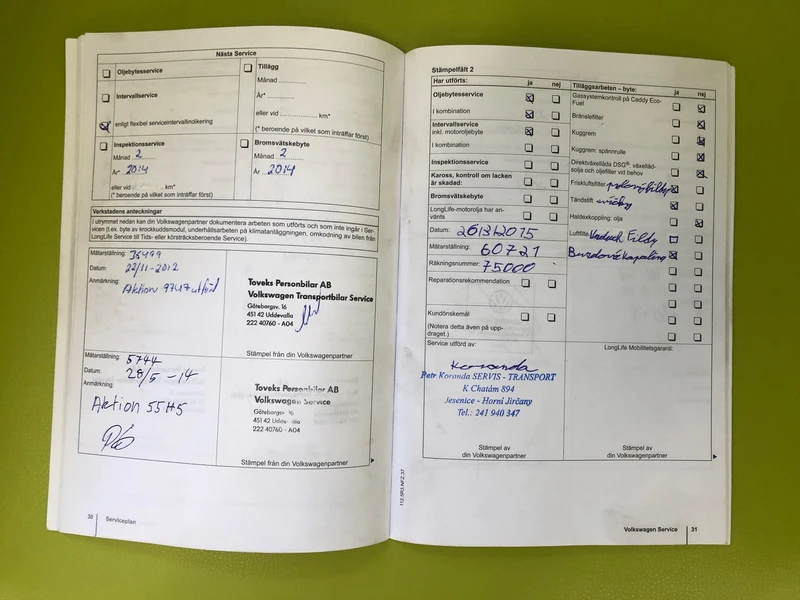 Nästa Service
Oljebytesservice
Intervallservice
enligt flexibel serviceintervallindikering
Inspektionsservice
Månad 2
År* 2014
eller vid km*
(* beroende på vilket som inträffar först)
Tillägg
Månad
År*
eller vid km*
(* beroende på vilket som inträffar först)
Bromsvätskebyte
Månad 2
År 2014
Verkstadens anteckningar
I utrymmet nedan kan din Volkswagenpartner dokumentera arbeten som utförts och som inte ingår i Ser-
vicen (t.ex. byte av krockkuddsmodul, underhållsarbeten på klimatanläggningen, omkodning av bilen från
LongLife Service till Tids- eller körsträcksberoende Service).
Mätarställning: 36499
Datum: 22/11-2012
Anmärkning: Aktion 9747 utförd
Toveks Personbilar AB
Volkswagen Transportbilar Service
Göteborgsv. 16
451 42 Uddevalla
222 40760 - A04
Stämpel från din Volkswagenpartner
Mätarställning: 5744
Datum: 28/5 -14
Anmärkning:
Aktion 55H5
Toveks Personbilar AB
Volkswagen Service
Göteborgsv. 16
451 42 Uddevalla
222 40760 - A04
Stämpel från din Volkswagenpartner
30 Serviceplan
Stämpelfält 2
Har utförts: ja nej
Oljebytesservice
I kombination
Intervallservice
inkl. motoroljebyte
I kombination
Inspektionsservice
Kaross, kontroll om lacken
är skadad:
Bromsvätskebyte
LongLife-motorolja har an-
vänts
Datum: 26 3 2015
Mätarställning: 60721
Räkningsnummer: 75000
Reparationsrekommendation
Kundönskemål
(Notera detta även på upp-
draget.)
Tilläggsarbeten – byte: ja nej
Gassystemkontroll på Caddy Eco-
Fuel
Bränslefilter
Kuggrem
Kuggrem: spännrulle
Direktväxellåda DSQ®: växellåd-
solja och oljefilter vid behov
Friskluftsfilter
Tändstift svíčky
Haldexkoppling: olja
Luftfilter
Service utförd av:
Koranda
Petr Koranda SERVIS - TRANSPORT
K Chatám 894
Jesenice - Horní Jirčany
Tel.: 241 940 347
Stämpel av
din Volkswagenpartner
LongLife Mobilitetsgaranti:
Stämpel av
din Volkswagenpartner
112.5R3.NFZ.37
Volkswagen Service 31